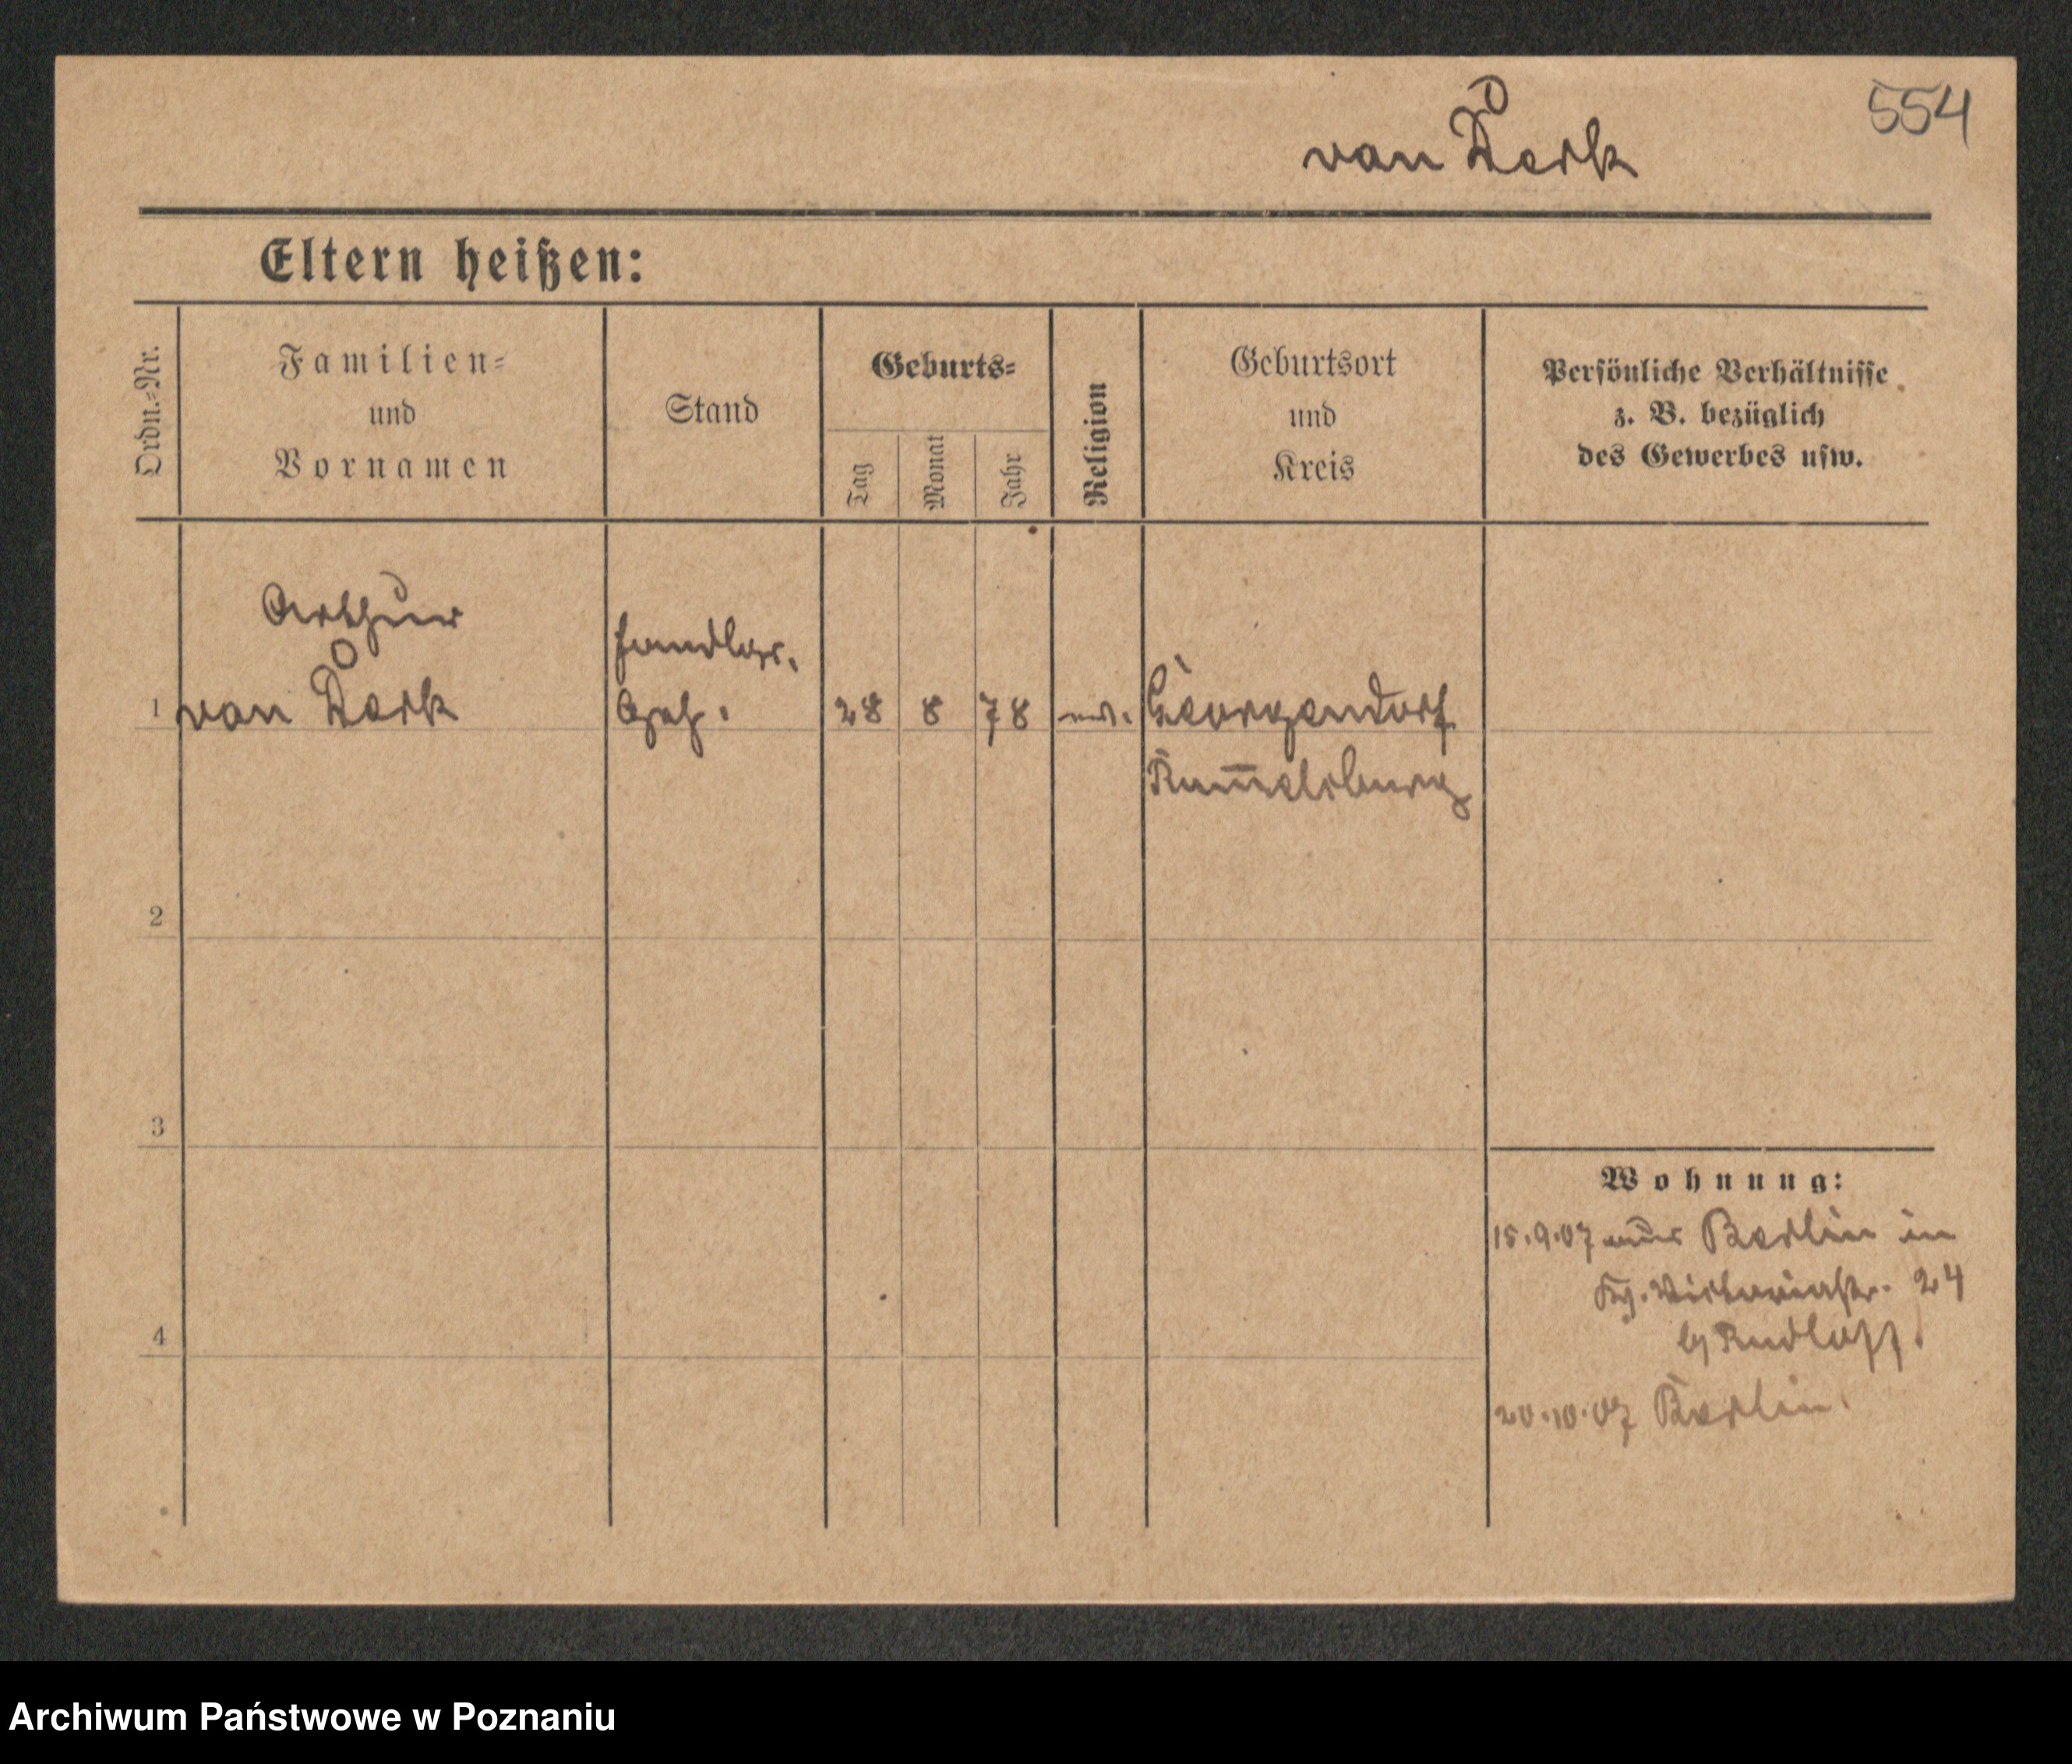 554
van Derk
Eltern heißen:
Ordn.-Nr.
Familien-
und
Vornamen
Stand
Geburts-
Tag
Monat
Jahr
Religion
Geburtsort
und
Kreis
Persönliche Verhältnisse
z. B. bezüglich
des Gewerbes usw.
Arthur
van Derk
Handlgs.
Geh.
1
28 8 78
Georgendorf
Rummelsburg
2
3
4
Wohnung:
15.9.07 aus Berlin in
Victoriastr. 24
b/ Rudloff.
20.10.07 Berlin.
Archiwum Państwowe w Poznaniu